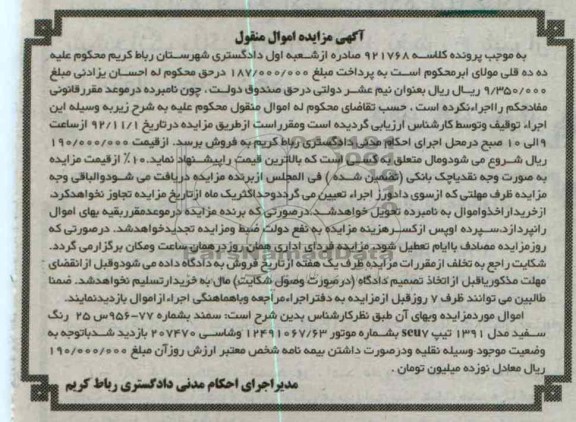 آگهی مزایده اموال منقول
به موجب پرونده کلاسه ۹۲۱۷۶۸ صادره ازشعبه اول دادگستری شهرستان رباط کریم محکوم علیه
ده ده قلی مولای ابرمحکوم است به پرداخت مبلغ ۱۸۷/۰۰۰/۰۰۰ درحق محکوم له احسان یزادنی مبلغ
۹/۳۵۰/۰۰۰ ریال ریال بعنوان نیم عشر دولتی درحق صندوق دولت ، چون نامبرده درموعد مقررقانونی
مفادحکم رااجراءنکرده است ، حسب تقاضای محکوم له اموال منقول محکوم علیه به شرح زیربه وسیله این
اجراء توقیف وتوسط کارشناس ارزیابی گردیده است ومقرراست ازطریق مزایده درتاریخ ۹۲/۱۱/۱ ازساعت
۹الی ۱۰ صبح درمحل اجرای احکام مدنی دادگستری رباط کریم به فروش برسد. ازقیمت ۱۹۰/۰۰۰/۰۰۰
ریال شروع می شودومال متعلق به کسی است که بالاترین قیمت راپیشنهاد نماید.۱۰٪ ازقیمت مزایده
به صورت وجه نقدیاچک بانکی (تضمین شده ) فی المجلس ازبرنده مزایده دریافت می شودوالباقی وجه
مزایده ظرف مهلتی که ازسوی دادورز اجراء تعیین می گرددوحداکثریک ماه ازتاریخ مزایده تجاوز نخواهدکرد.
ازخریداراخذواموال به نامبرده تحویل خواهدشد.درصورتی که برنده مزایده درموعدمقرربقیه بهای اموال
رانپردازد،سپرده اوپس ازکسرهزینه مزایده به نفع دولت ضبط ومزایده تجدیدخواهدشد. درصورتی که
روزمزایده مصادف باایام تعطیل شود، مزایده فردای اداری همان روزدرهمان ساعت ومکان برگزارمی گردد.
شکایت راجع به تخلف ازمقررات مزایده ظرف یک هفته ازتاریخ فروش به دادگاه داده می شودوقبل ازانقضای
مهلت مذکوریاقبل ازاتخاذ تصمیم دادگاه (درصورت وصول شکایت) مال به خریدارتسلیم نخواهدشد. ضمنا
طالبین می توانند ظرف ۷ روزقبل ازمزایده به دفتراجراءمراجعه وباهماهنگی اجراءازاموال بازدیدنمایند.
اموال موردمزایده وبهای آن طبق نظرکارشناس بدین شرح است: سمند بشماره ۷۷-۹۵۶س ۲۵ رنگ
سفید مدل ۱۳۹۱ تیپ scu۷ بشماره موتور ۱۲۴۹۱۰۶۷/۶۳ وشاسی ۲۰۷۴۷۰ بازدید شدباتوجه به
وضعیت موجود وسیله نقلیه ودرصورت داشتن بیمه نامه شخص معتبر ارزش روزآن مبلغ ۱۹۰/۰۰۰/۰۰۰
ریال معادل نوزده میلیون تومان .
مدیراجرای احکام مدنی دادگستری رباط کریم